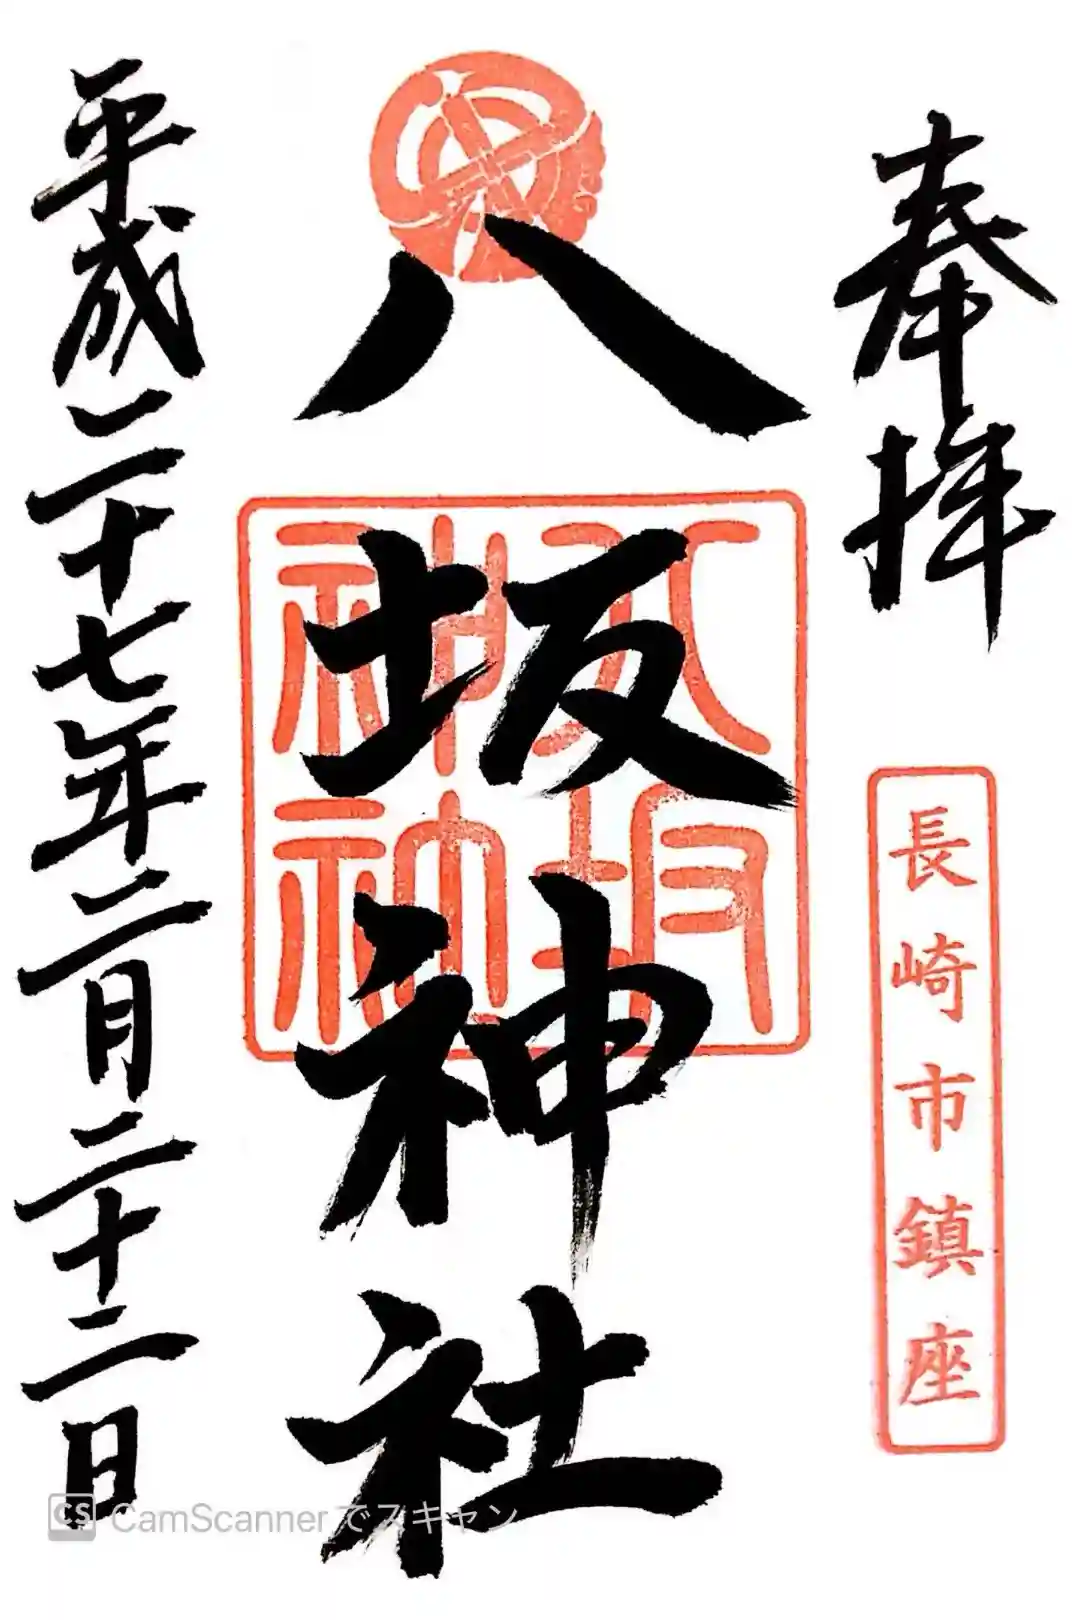 奉拝
長崎市鎮座
八坂神社
平成二十七年二月二十二日
CS CamScannerでスキャン